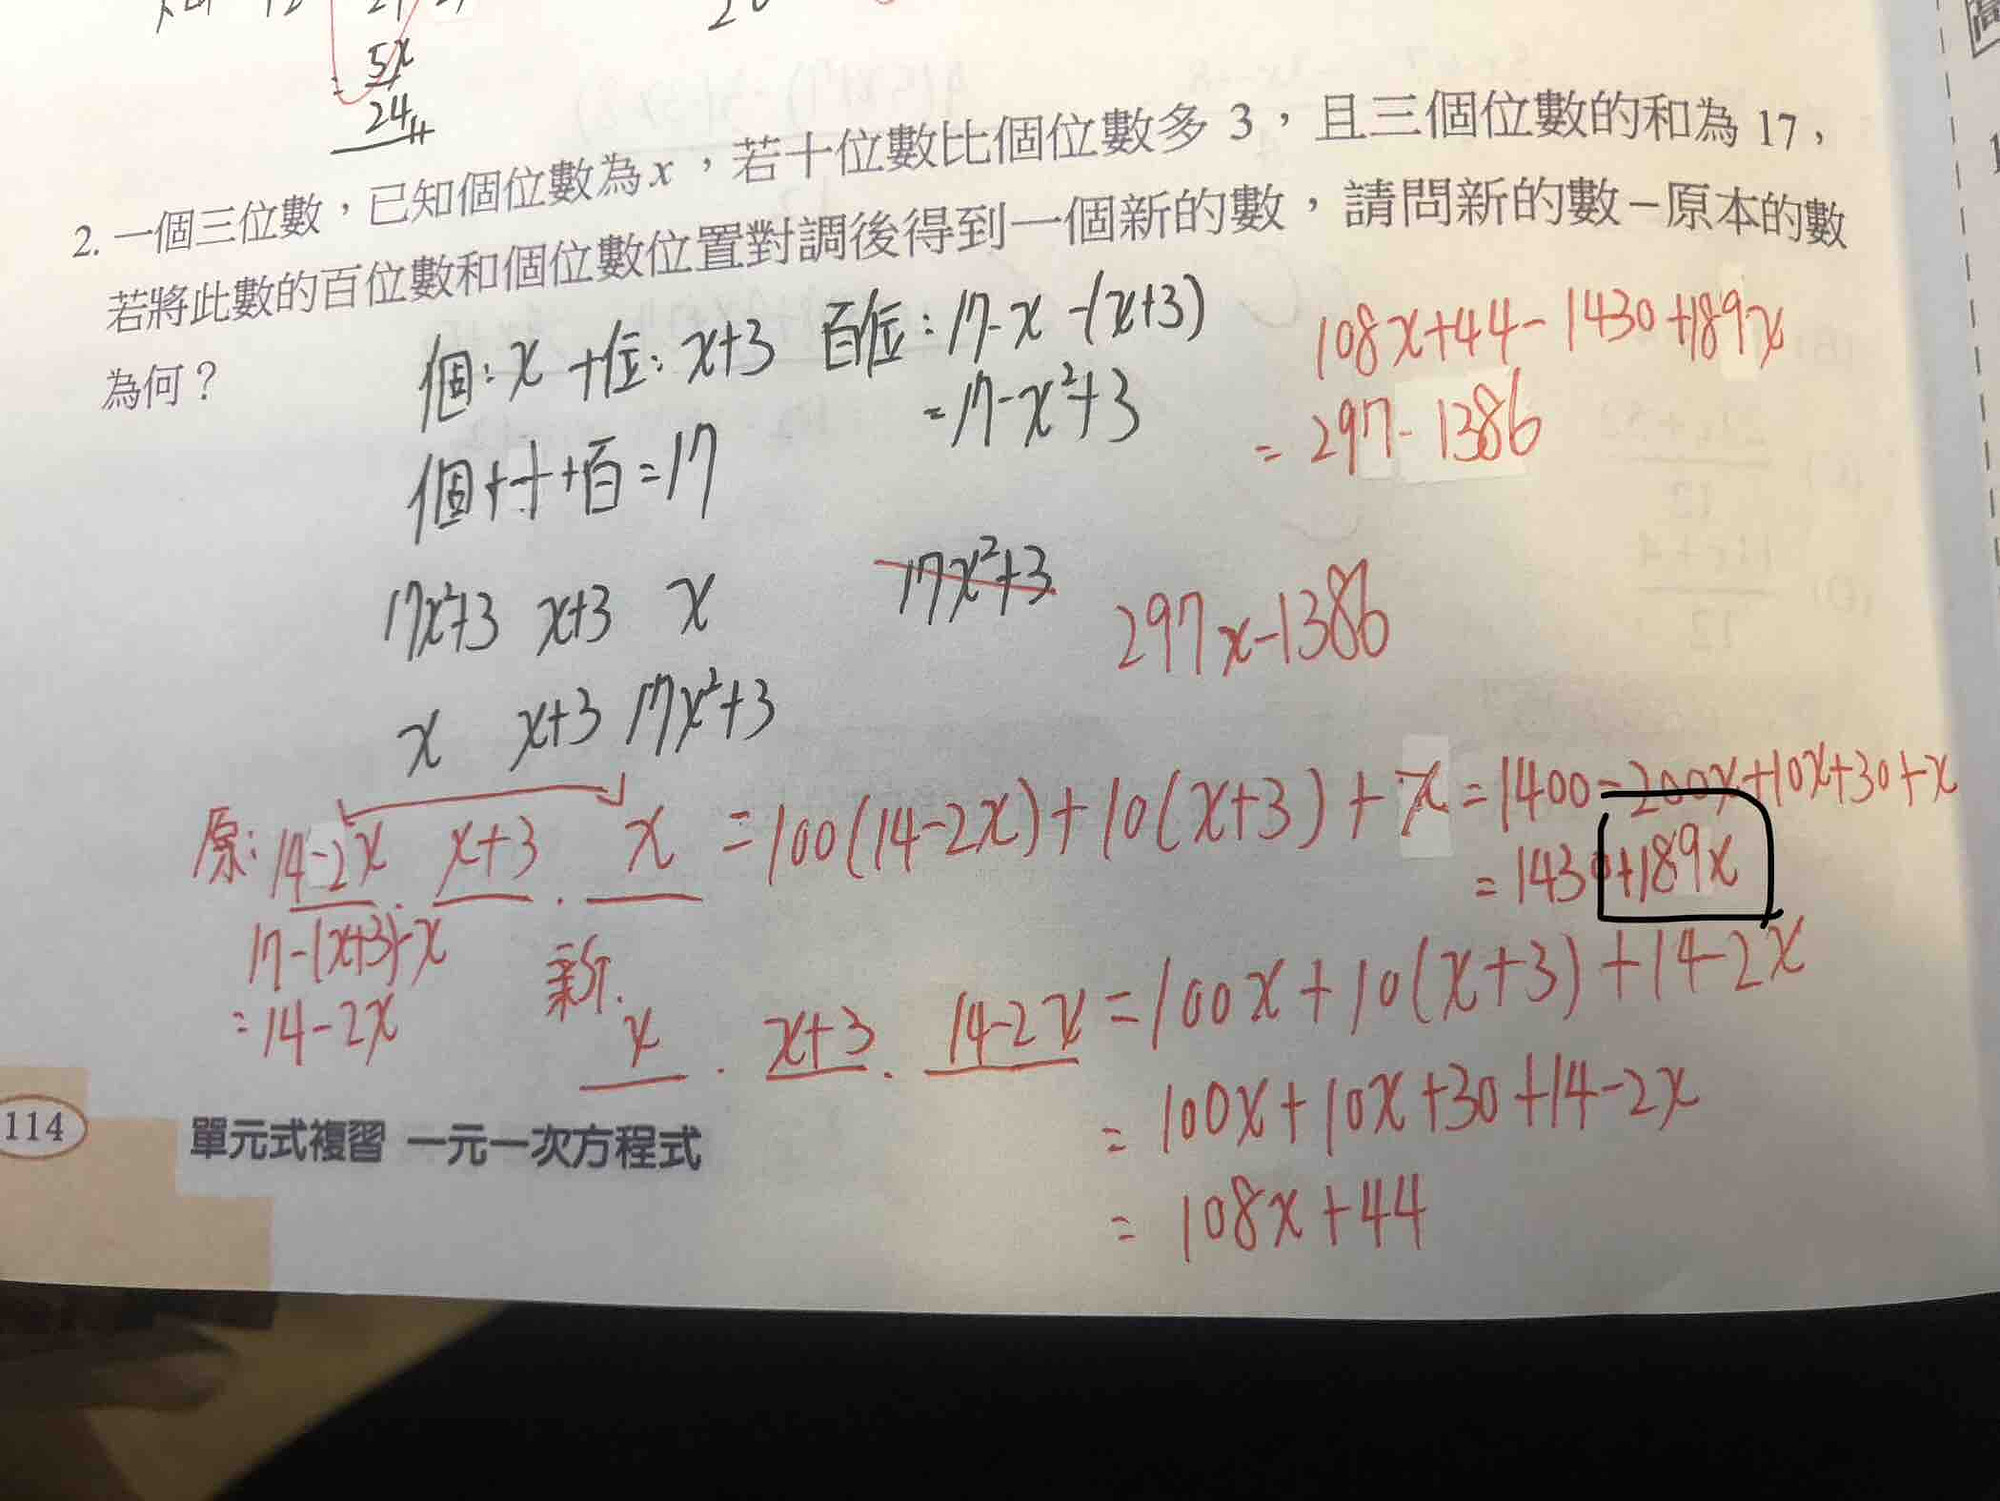 5x
24
2. 一個三位數，已知個位數為x，若十位數比個位數多 3，且三個位數的和為 17，
若將此數的百位數和個位數位置對調後得到一個新的數，請問新的數－原本的數
為何？
個：x 十位：x+3 百位：17-x-(x+3)
=17-x²+3
108x+44-1430+189x
=297-1386
個+十+百=17
17x²+3 x+3 x
17x²+3
297x-1386
x x+3 17x²+3
原：14-2x . x+3 . x =100(14-2x)+10(x+3)+x =1400-200x+10x+30+x
=1430+189x
17-(x+3)-x
=14-2x
新. x . x+3 . 14-2x =100x+10(x+3)+14-2x
=100x+10x+30+14-2x
=108x+44
114 單元式複習 一元一次方程式